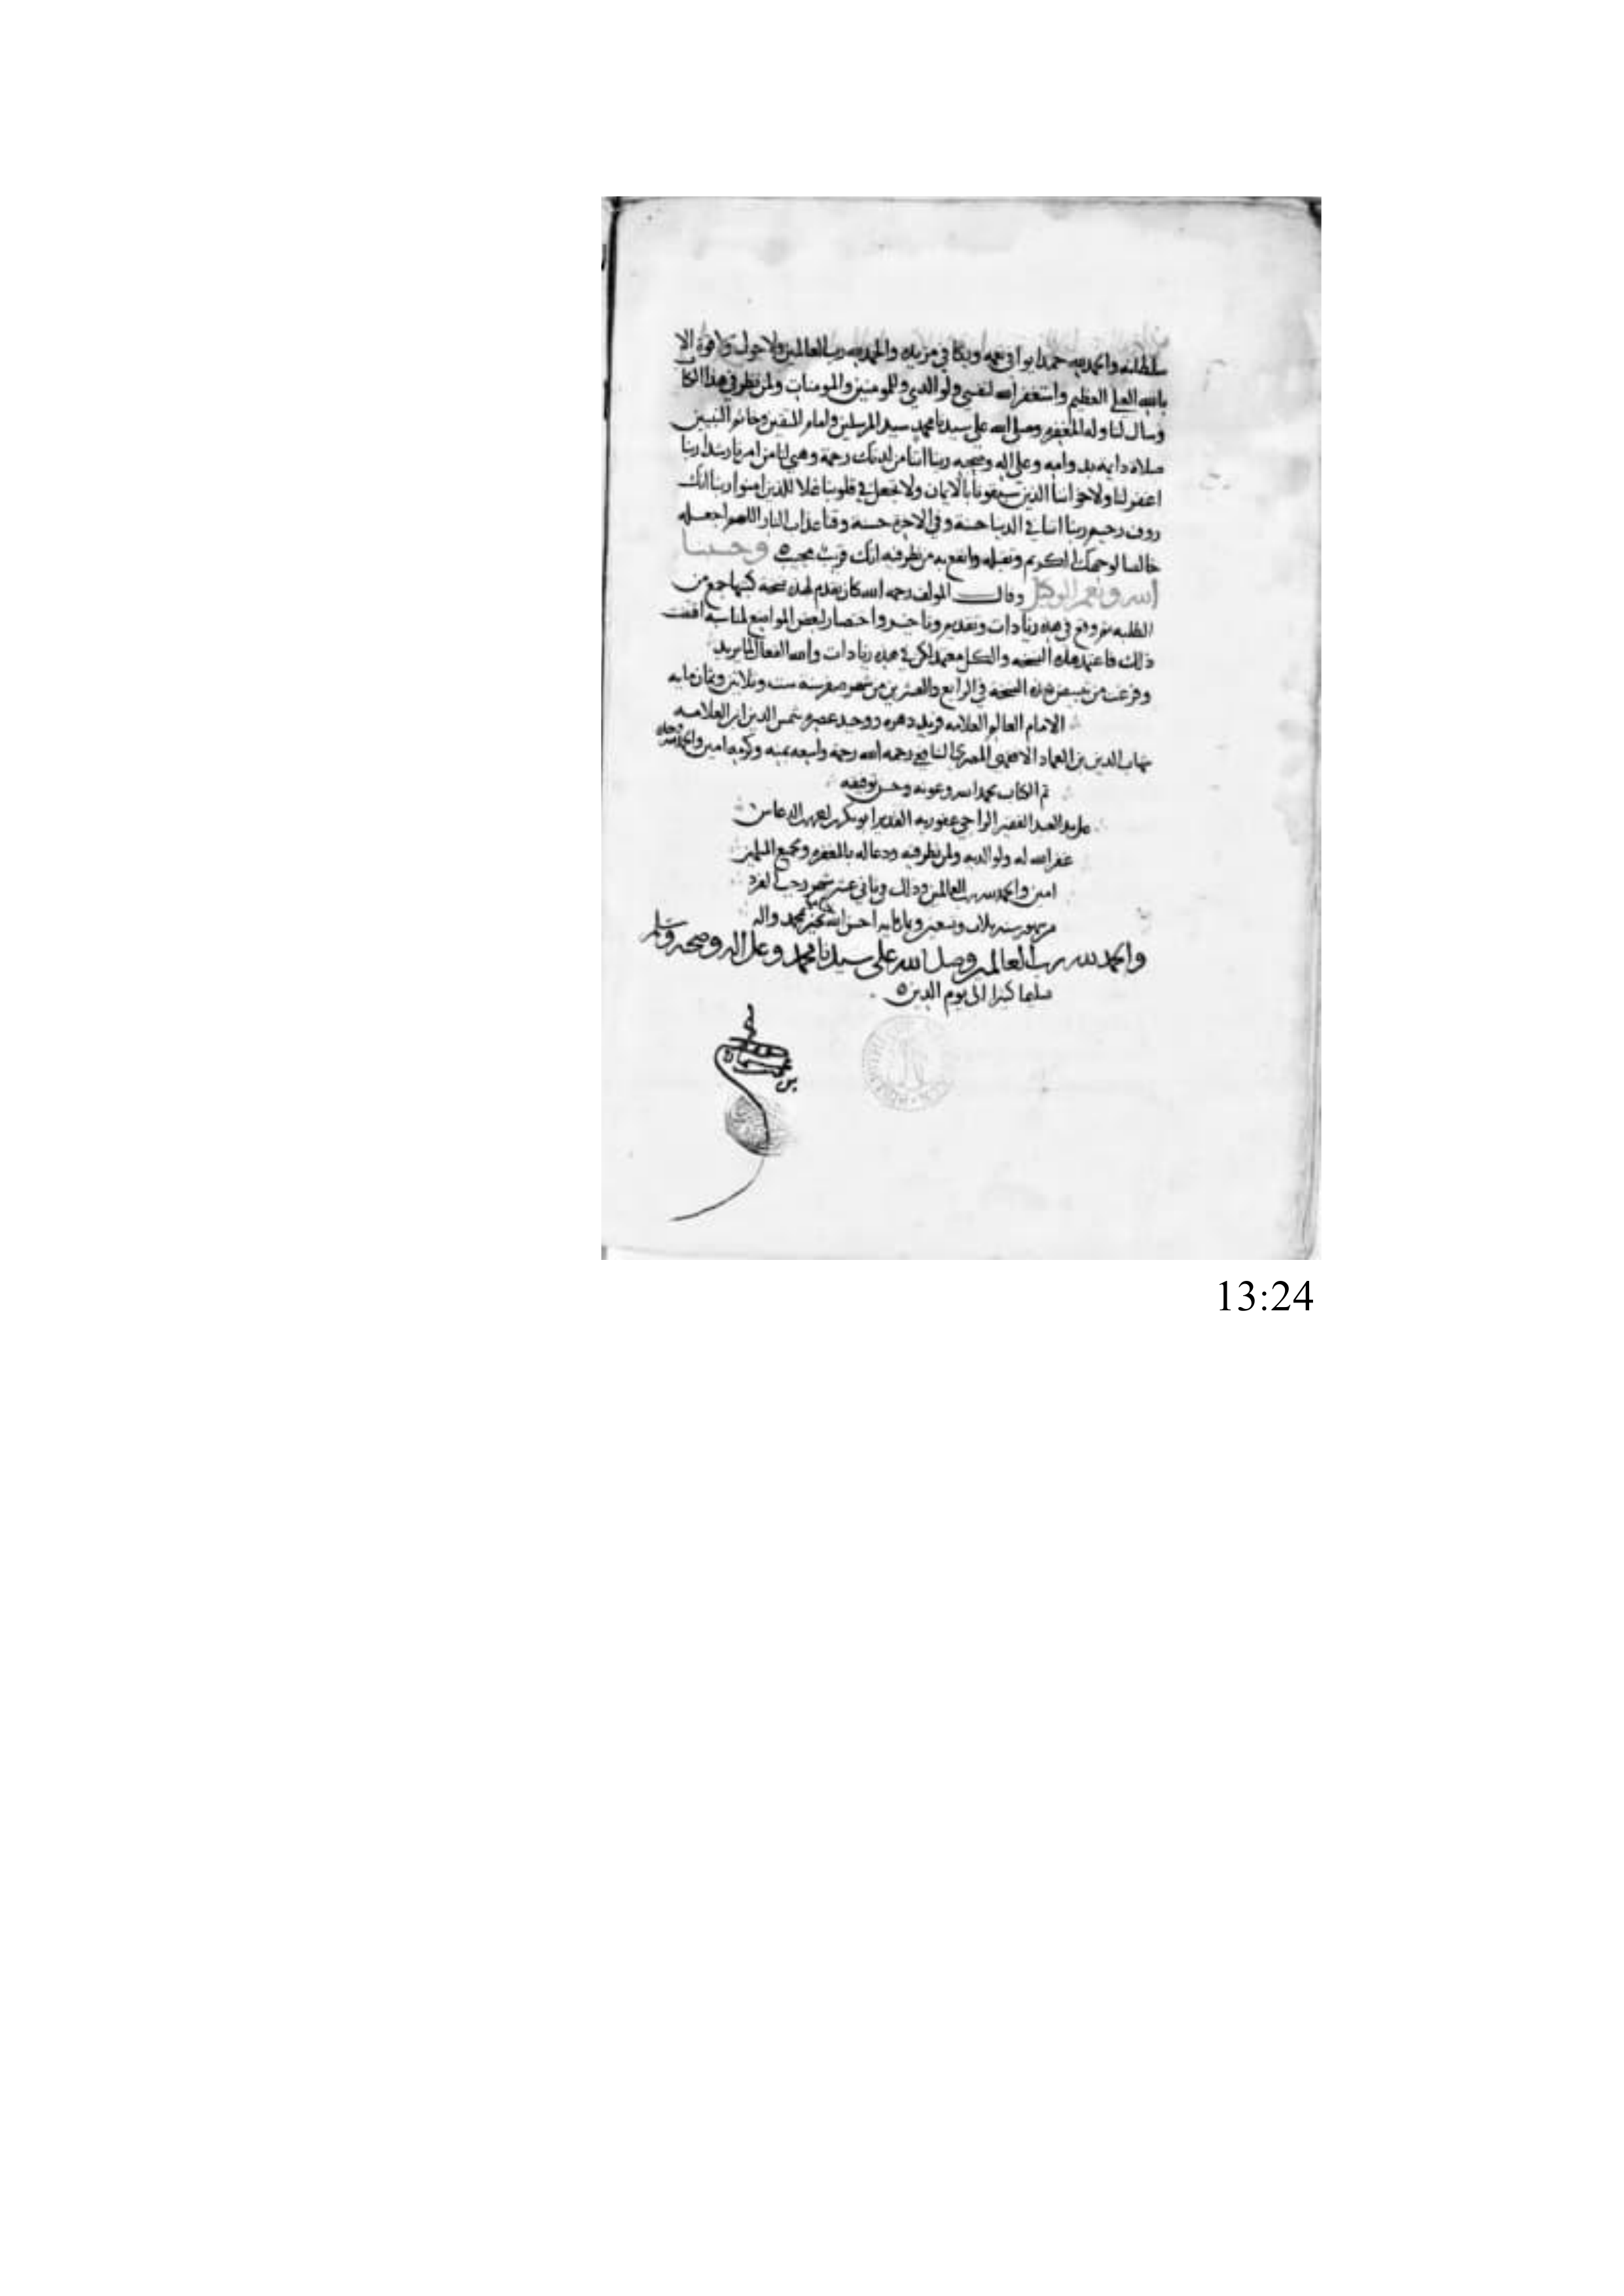 سلطانه والحمد لله حمدا يوافي نعمه ويكافي مزيده والحمد لله رب العالمين ولا حول ولا قوة الا
بالله العلي العظيم واستغفر الله لنفسي ولوالدي وللمومنين والمومنات ولمن نظر في هذا الكتاب
وسال لنا وله المغفره وصلى الله على سيدنا محمد سيد المرسلين وامام المتقين وخاتم النبيين
صلاة دايمة بدوامه وعلى اله وصحبه ربنا اتنا من لدنك رحمة وهيي لنا من امرنا رشدا ربنا
اغفر لنا ولاخواننا الذين سبقونا بالايمان ولا تجعل في قلوبنا غلا للذين امنوا ربنا انك
روف رحيم ربنا اتنا في الدنيا حسنة وفي الاخرة حسنة وقنا عذاب النار اللهم اجعله
خالصا لوجهك الكريم وتقبله وانفع به من نظر فيه انك قريب مجيب وحسبنا
الله ونعم الوكيل وقال المولف رحمه الله كان تقدم لهذه نسخة كتبها جمع من
الطلبه ثم وقع في هذه زيادات وتقديم وتاخير واختصار لبعض المواضع لمناسبة اقتضت
ذلك فاعتمد هذه النسخه والكل معتمد لكن في هذه زيادات والله الفعال لما يريد
وفرغت من تبييض هذه النسخة في الرابع والعشرين من شهر صفر سنة ست وثلاثين وثمان مايه
الامام العالم العلامه فريد دهره ووحيد عصره شمس الدين ابن العلامه
شهاب الدين بن العماد الاقفهسي المصري الشافعي رحمه الله رحمة واسعه بمنه وكرمه امين والحمد لله وحده
تم الكتاب بحمد الله وعونه وحسن توفيقه
على يد العبد الفقير الراجي عفو ربه القدير ابو بكر
غفر الله له ولوالديه ولمن نظر فيه ودعا له بالمغفره وجميع المسلمين
امين والحمد لله رب العالمين وذلك في ثاني عشر شهر رجب الفرد
سنة ثلاث وتسعين وثمانمايه احسن الله بخير محمد واله
والحمد لله رب العالمين وصلى الله على سيدنا محمد وعلى اله وصحبه وسلم
تسليما كثيرا الى يوم الدين
13:24